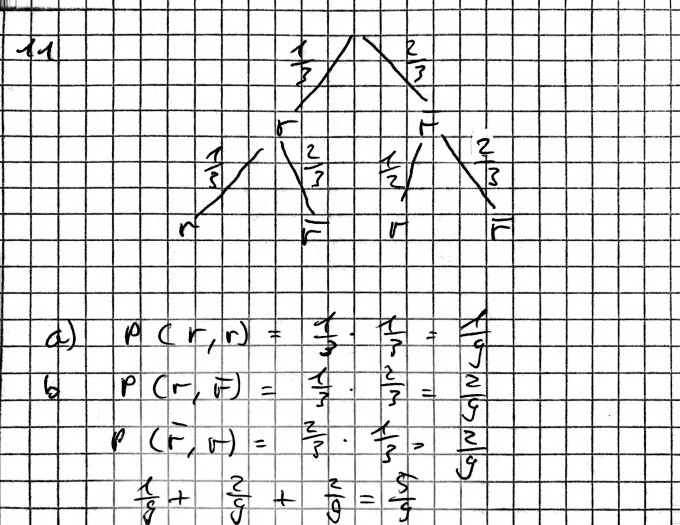 11
1/3 2/3
r r̅
1/3 2/3 1/2 2/3
r r̅ r r̅
a) P (r, r) = 1/3 · 1/3 = 1/9
b P (r, r̅) = 1/3 · 2/3 = 2/9
P (r̅, r) = 2/3 · 1/3 = 2/9
1/9 + 2/9 + 2/9 = 5/9